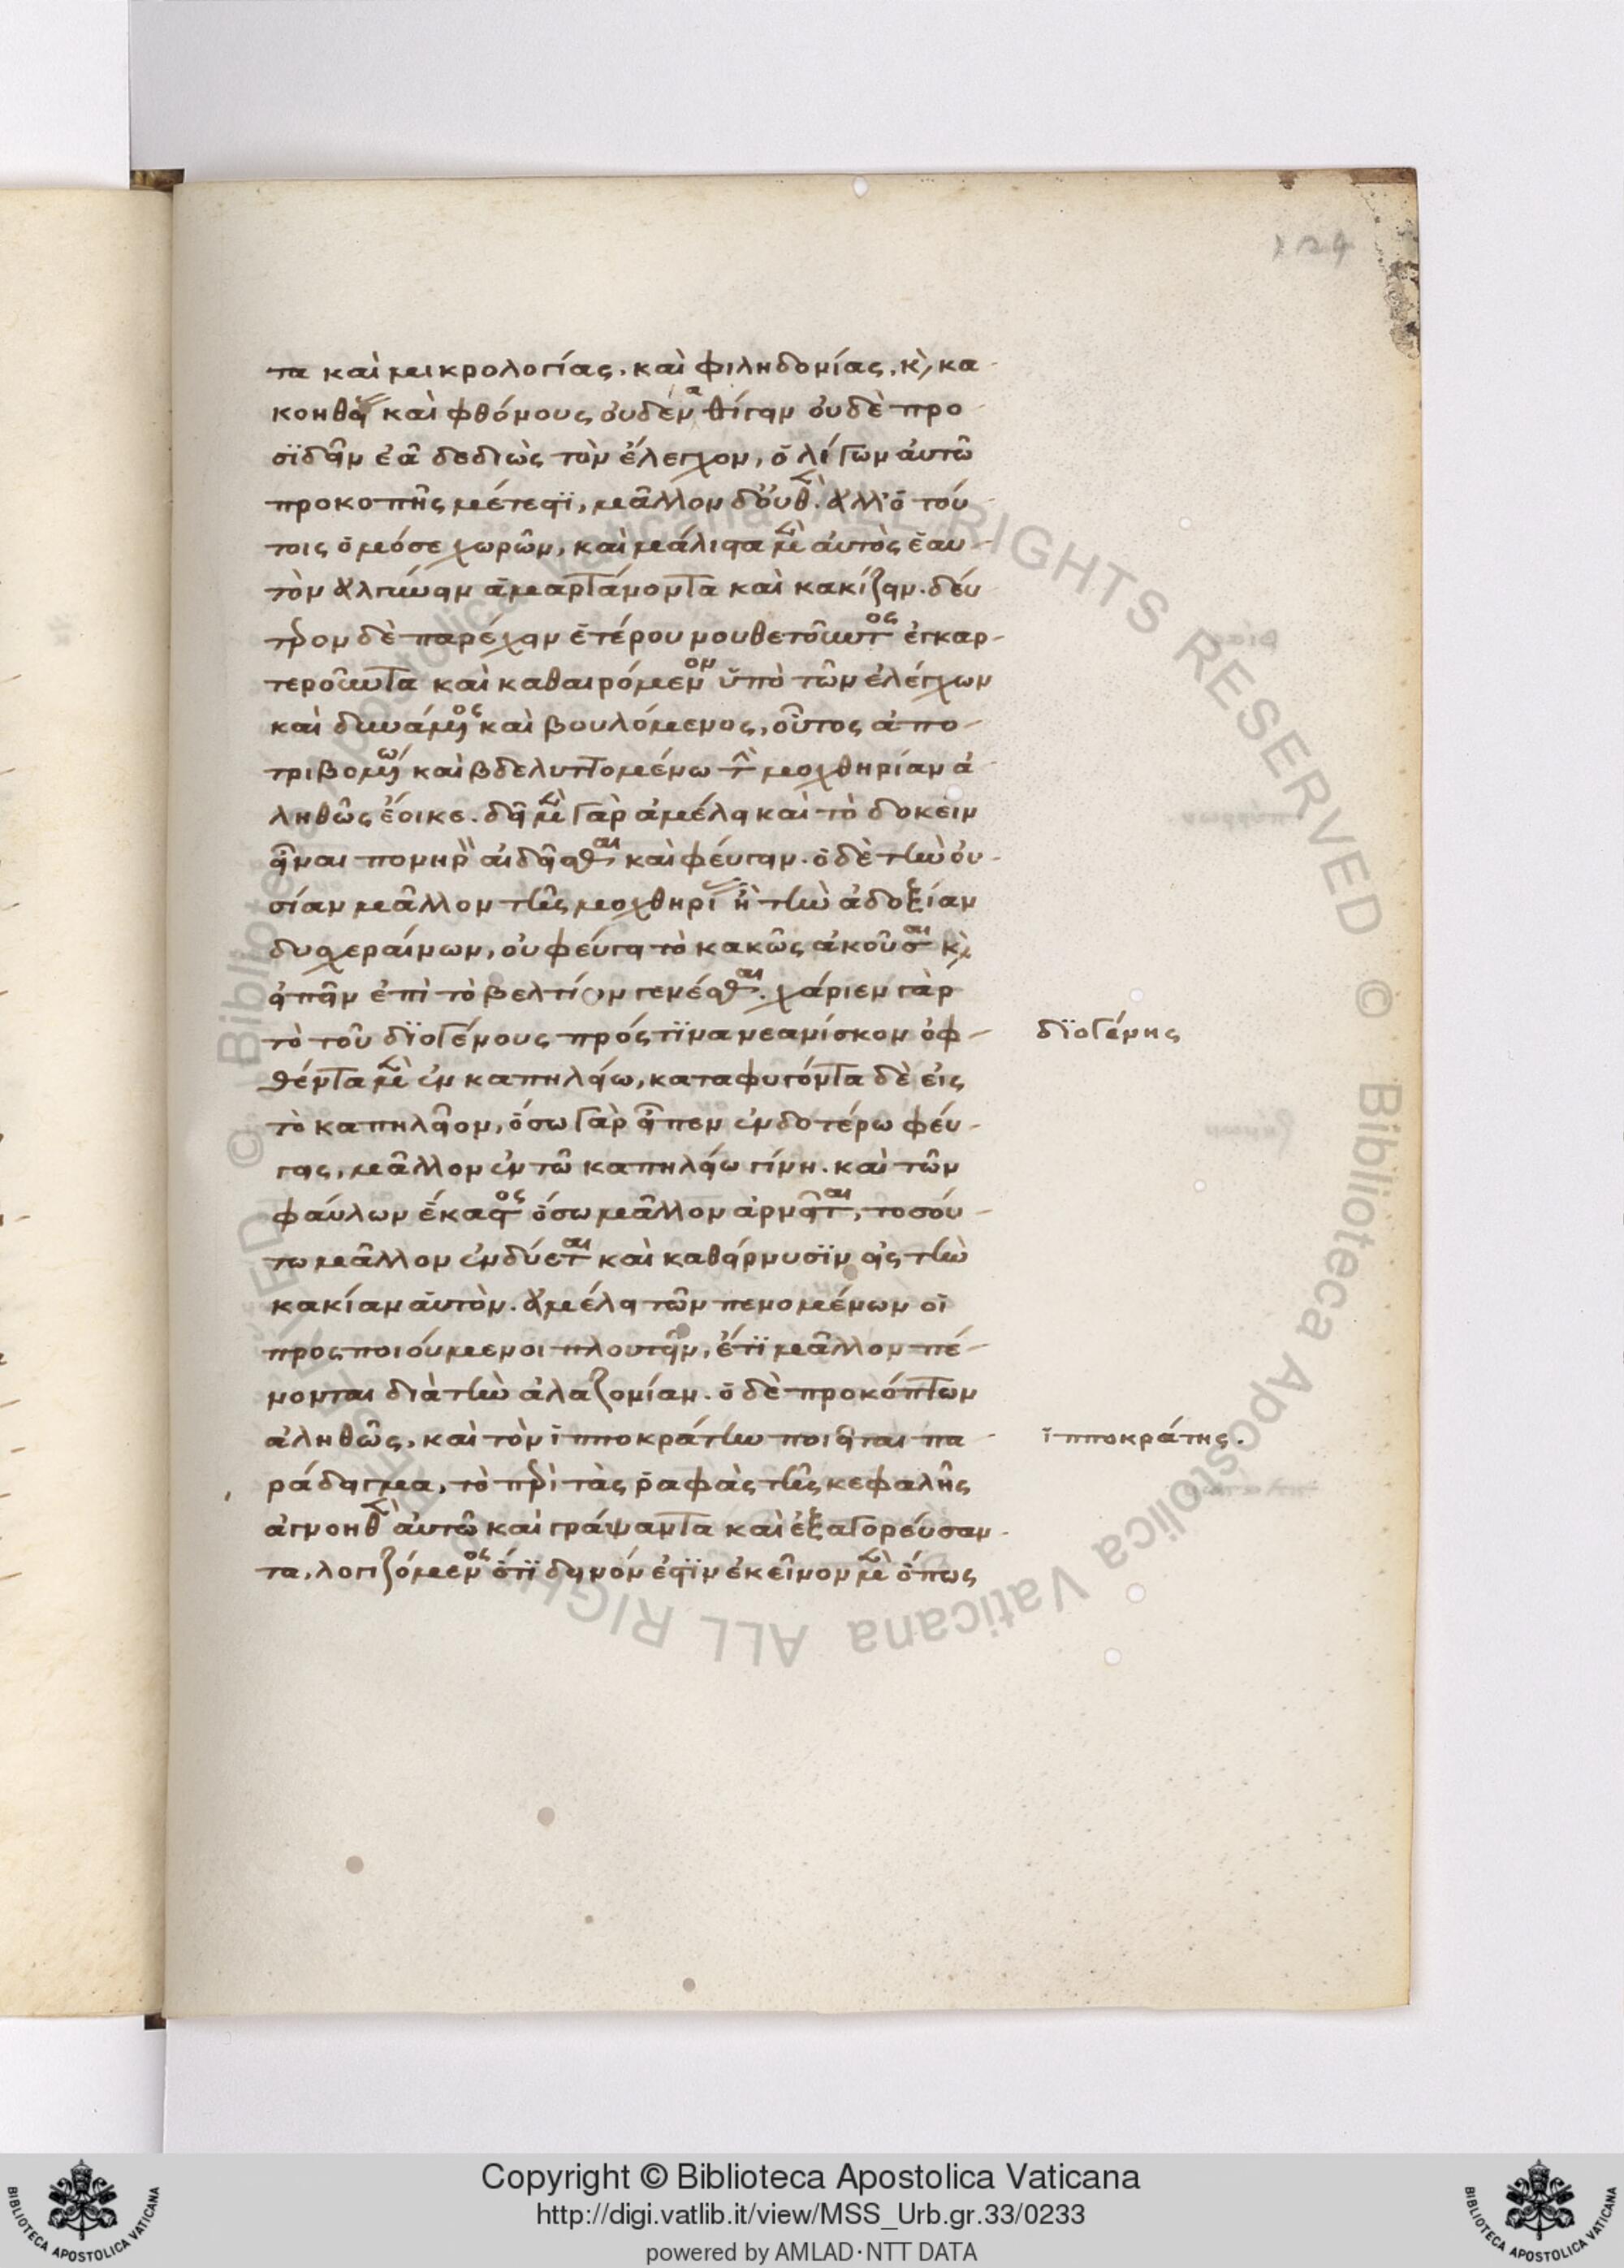 124
τα καὶ μικρολογίας. καὶ φιληδονίας, κ, κα-
κοηθείας καὶ φθόνους οὐδένα θίγειν οὐδὲ προ-
σϊδεῖν ἐᾶ δεδιὼς τὸν ἔλεγχον, ὀλίγων αὐτῶ
προκοπῆς μέτεστϊ, μᾶλλον δ' οὐθενός. ἀλλ' ὁ τού-
τοις ὁμόσε χωρῶν, καὶ μάλιστα μὲν αὐτὸς ἑαυ-
τὸν ἀλγύνειν ἁμαρτάνοντα καὶ κακίζειν. δεύ-
τερον δὲ παρέχειν ἑτέρου νουθετοῦντος ἐγκαρ-
τεροῦντα καὶ καθαιρόμενον ὑπὸ τῶν ἐλέγχων
καὶ δυνάμενος καὶ βουλόμενος, οὗτος ἀπο-
τριβομένω καὶ βδελυττομένω τὴν μοχθηρίαν ἀ-
ληθῶς ἔοικε. δεῖ μὲν γὰρ ἀμέλει καὶ τὸ δοκεῖν
εἶναι πονηρὸν αἰδεῖσθαι καὶ φεύγειν. ὁ δὲ τὴν οὐ-
σίαν μᾶλλον τῆς μοχθηρίας ἢ τὴν ἀδοξίαν
δυσχεραίνων, οὐ φεύγει τὸ κακῶς ἀκοῦσαι κ,
εἰπεῖν ἐπὶ τὸ βελτίων γενέσθαι. χάριεν γὰρ
τὸ τοῦ δϊογένους πρός τϊνα νεανίσκον ὀφ-
δϊογένης
θέντα μὲν ἐν καπηλείω, καταφυγόντα δὲ εἰς
τὸ καπηλεῖον, ὅσω γὰρ εἶπεν ἐνδοτέρω φεύ-
γεις, μᾶλλον ἐν τῶ καπηλείω γίνη. καὶ τῶν
φαύλων ἕκαστος ὅσω μᾶλλον ἀρνεῖται, τοσού-
τω μᾶλλον ἐνδύεται καὶ καθείργνυσϊν εἰς τὴν
κακίαν αὑτὸν. ἀμέλει τῶν πενομένων οἱ
προςποιούμενοι πλουτεῖν, ἔτϊ μᾶλλον πέ-
νονται διὰ τὴν ἀλαζονίαν. ὁ δὲ προκόπτων
ἀληθῶς, καὶ τὸν ἱπποκράτην ποιεῖται πα-
ἱπποκράτης.
ράδειγμα, τὸ περὶ τὰς ῥαφὰς τῆς κεφαλῆς
ἀγνοηθὲν αὐτῶ καὶ γράψαντα καὶ ἐξαγορεύσαν-
τα, λογιζόμενος ὅτϊ δεινόν ἐστϊν ἐκεῖνον μὲν ὅπως
© Biblioteca Apostolica Vaticana ALL RIGHTS RESERVED © Biblioteca Apostolica Vaticana ALL RIGHTS RESERVED
Copyright © Biblioteca Apostolica Vaticana
http://digi.vatlib.it/view/MSS_Urb.gr.33/0233
powered by AMLAD·NTT DATA
BIBLIOTECA APOSTOLICA VATICANA
BIBLIOTECA APOSTOLICA VATICANA